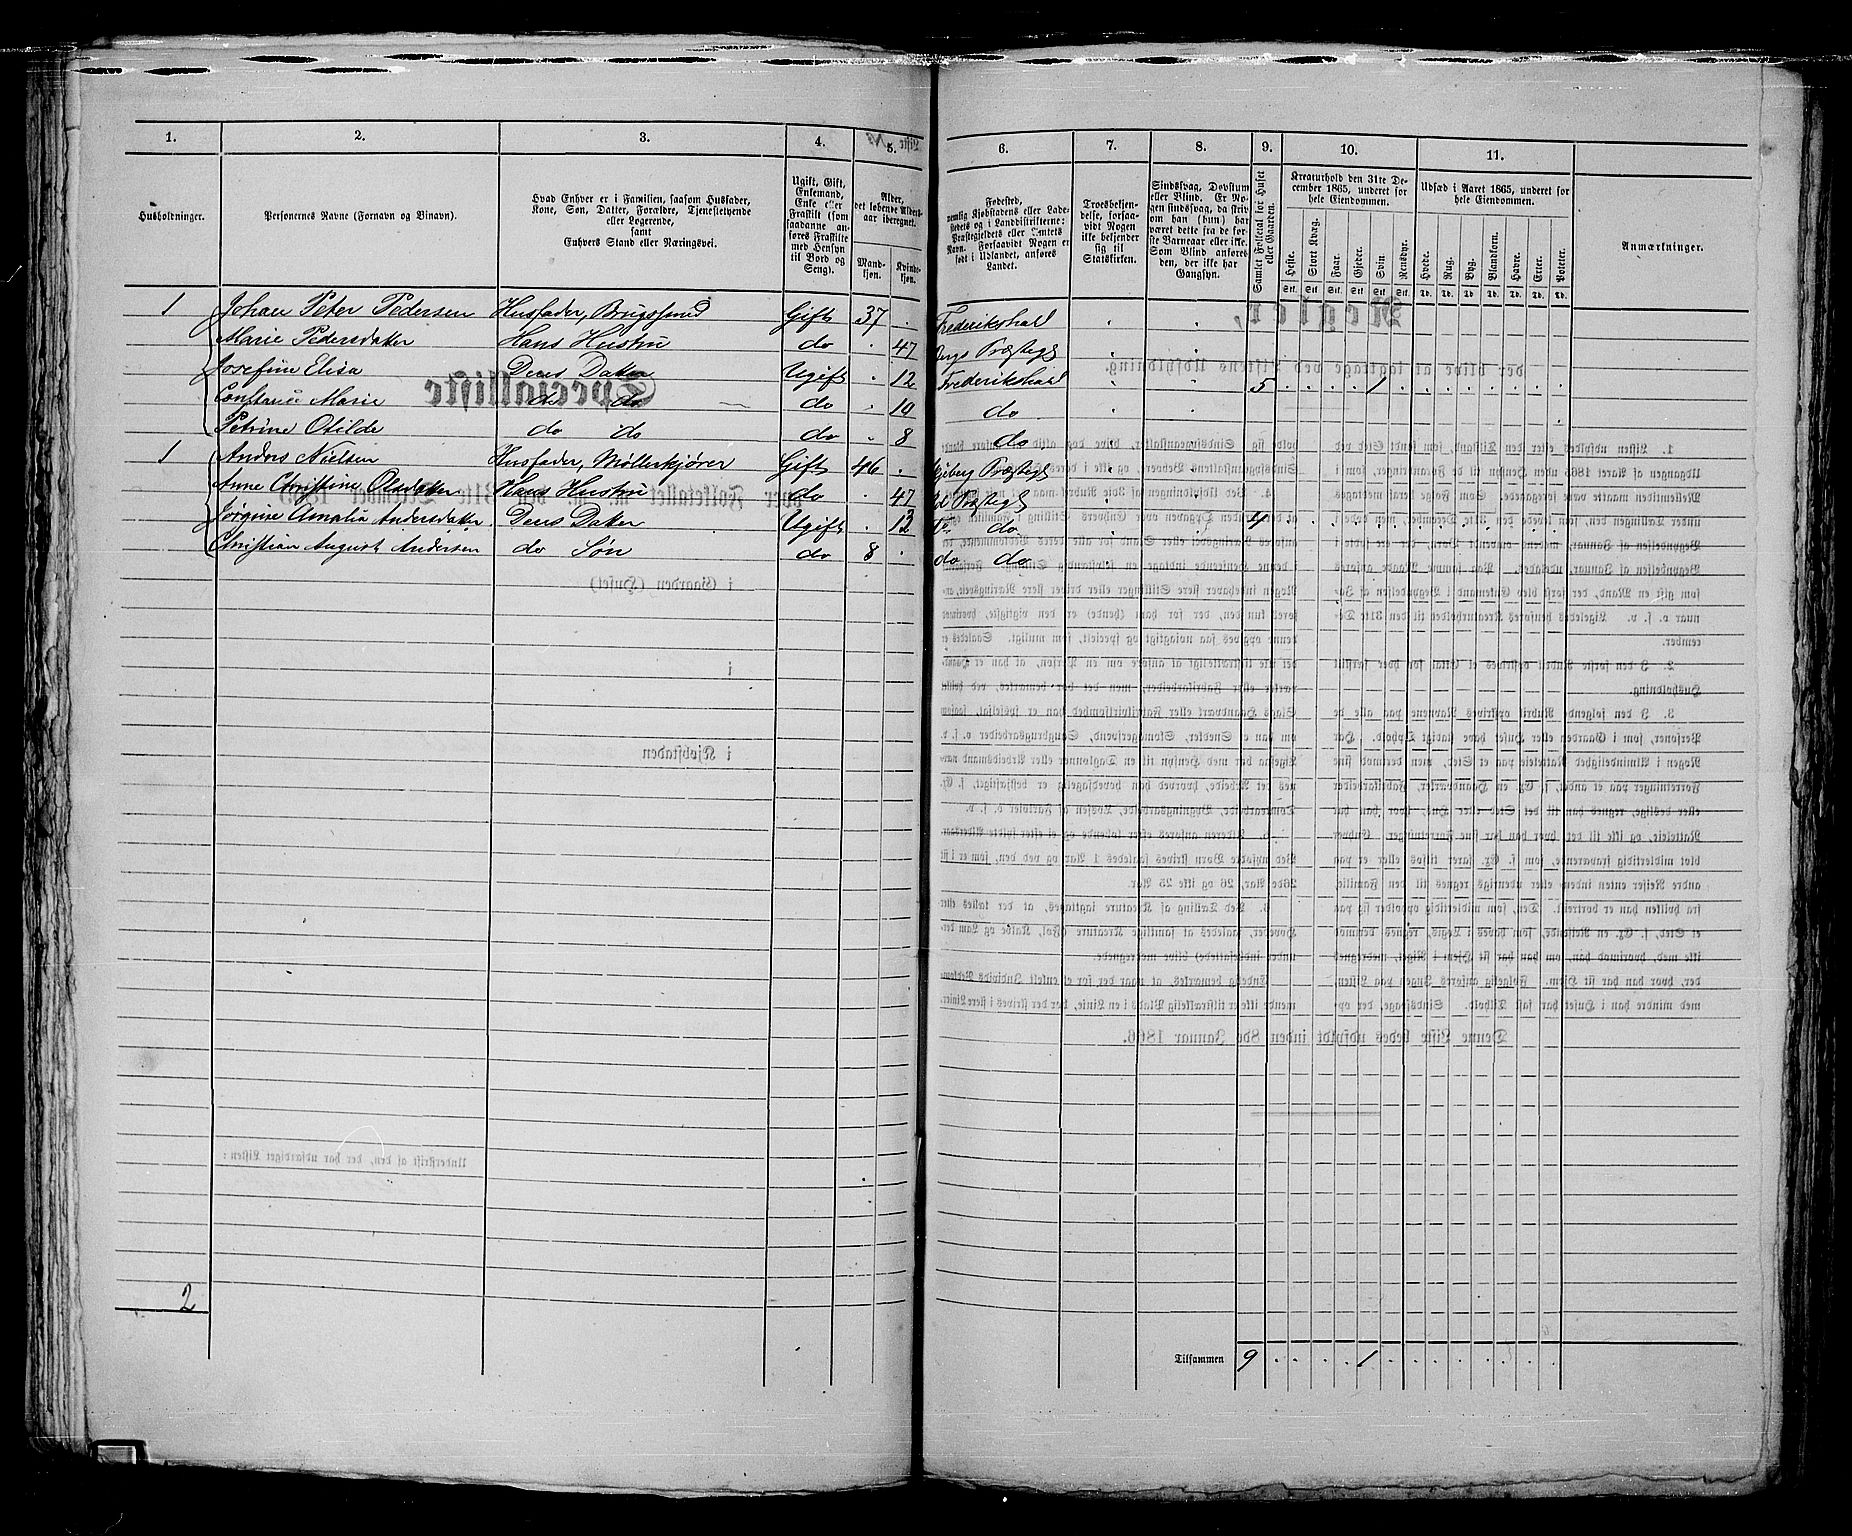 1. 2. 3. 4. 5. 6. 7. 8. 9. 10. 11.
Husholdninger.
Personernes Navne (Fornavn og Binavn).
Hvad Enhver er i Familien, saasom Husfader,
Kone, Søn, Datter, Forældre, Tjenstetyende
eller Logerende,
samt
Enhvers Stand eller Næringsvei.
Ugift, Gift,
Enkemand,
Enke eller
Fraskilt (som
saadanne an-
føres Fraskilte
med Hensyn
til Bord og
Seng).
Alder,
det løbende Alders-
aar iberegnet.
Mand-
kjøn.
Kvinde-
kjøn.
Fødested,
nemlig Kjøbstadens eller Lade-
stedets og i Landdistrikterne:
Præstegjeldets eller Amtets
Navn. Forsaavidt Nogen er
født i Udlandet, anføres
Landet.
Troesbekjen-
delse, forsaa-
vidt Nogen
ikke bekjender
sig til
Statskirken.
Sindssvag, Døvstum
eller Blind. Er No-
gen sindssvag, da skriv
om han (hun) har
været dette fra de før-
ste Barneaar eller ikke.
Som Blind anføres
den, der ikke har
Gangsyn.
Samlet Folketal for Huset
eller Gaarden.
Kreaturhold den 31te De-
cember 1865, underet for
hele Eiendommen.
Heste. Stort Kvæg. Faar. Gjeder. Svin. Rensdyr.
Stk. Stk. Stk. Stk. Stk. Stk.
Udsæd i Aaret 1865, underet for
hele Eiendommen.
Hvede. Rug. Byg. Blandkorn. Havre. Erter. Poteter.
Td. Td. Td. Td. Td. Td. Td.
Anmærkninger.
1 Johan Peter Pedersen Husfader, Brugssvend Gift 37 . Frederikshall
Marie Pedersdatter Hans Hustru do . 47 Bergs Præstegl
Josefine Elisa Deres Datter Ugift . 12 Frederikshal 5 . . . . 1 . . . . . . . .
Constance Marie do do do . 10 do
Petrine Otilde do do do . 8 do
1 Anders Nielsen Husfader, Møllerkjører Gift 46 . Skjeberg Præstegl
Anne Christine Olsdatter Hans Hustru do . 47 Id Præstegl
Jørgine Amalia Andersdatter Deres Datter Ugift . 12 do 4
Christian August Andersen do Søn do 8 . do do
2
Tilsammen 9 . . . . 1 . . . . . . . .